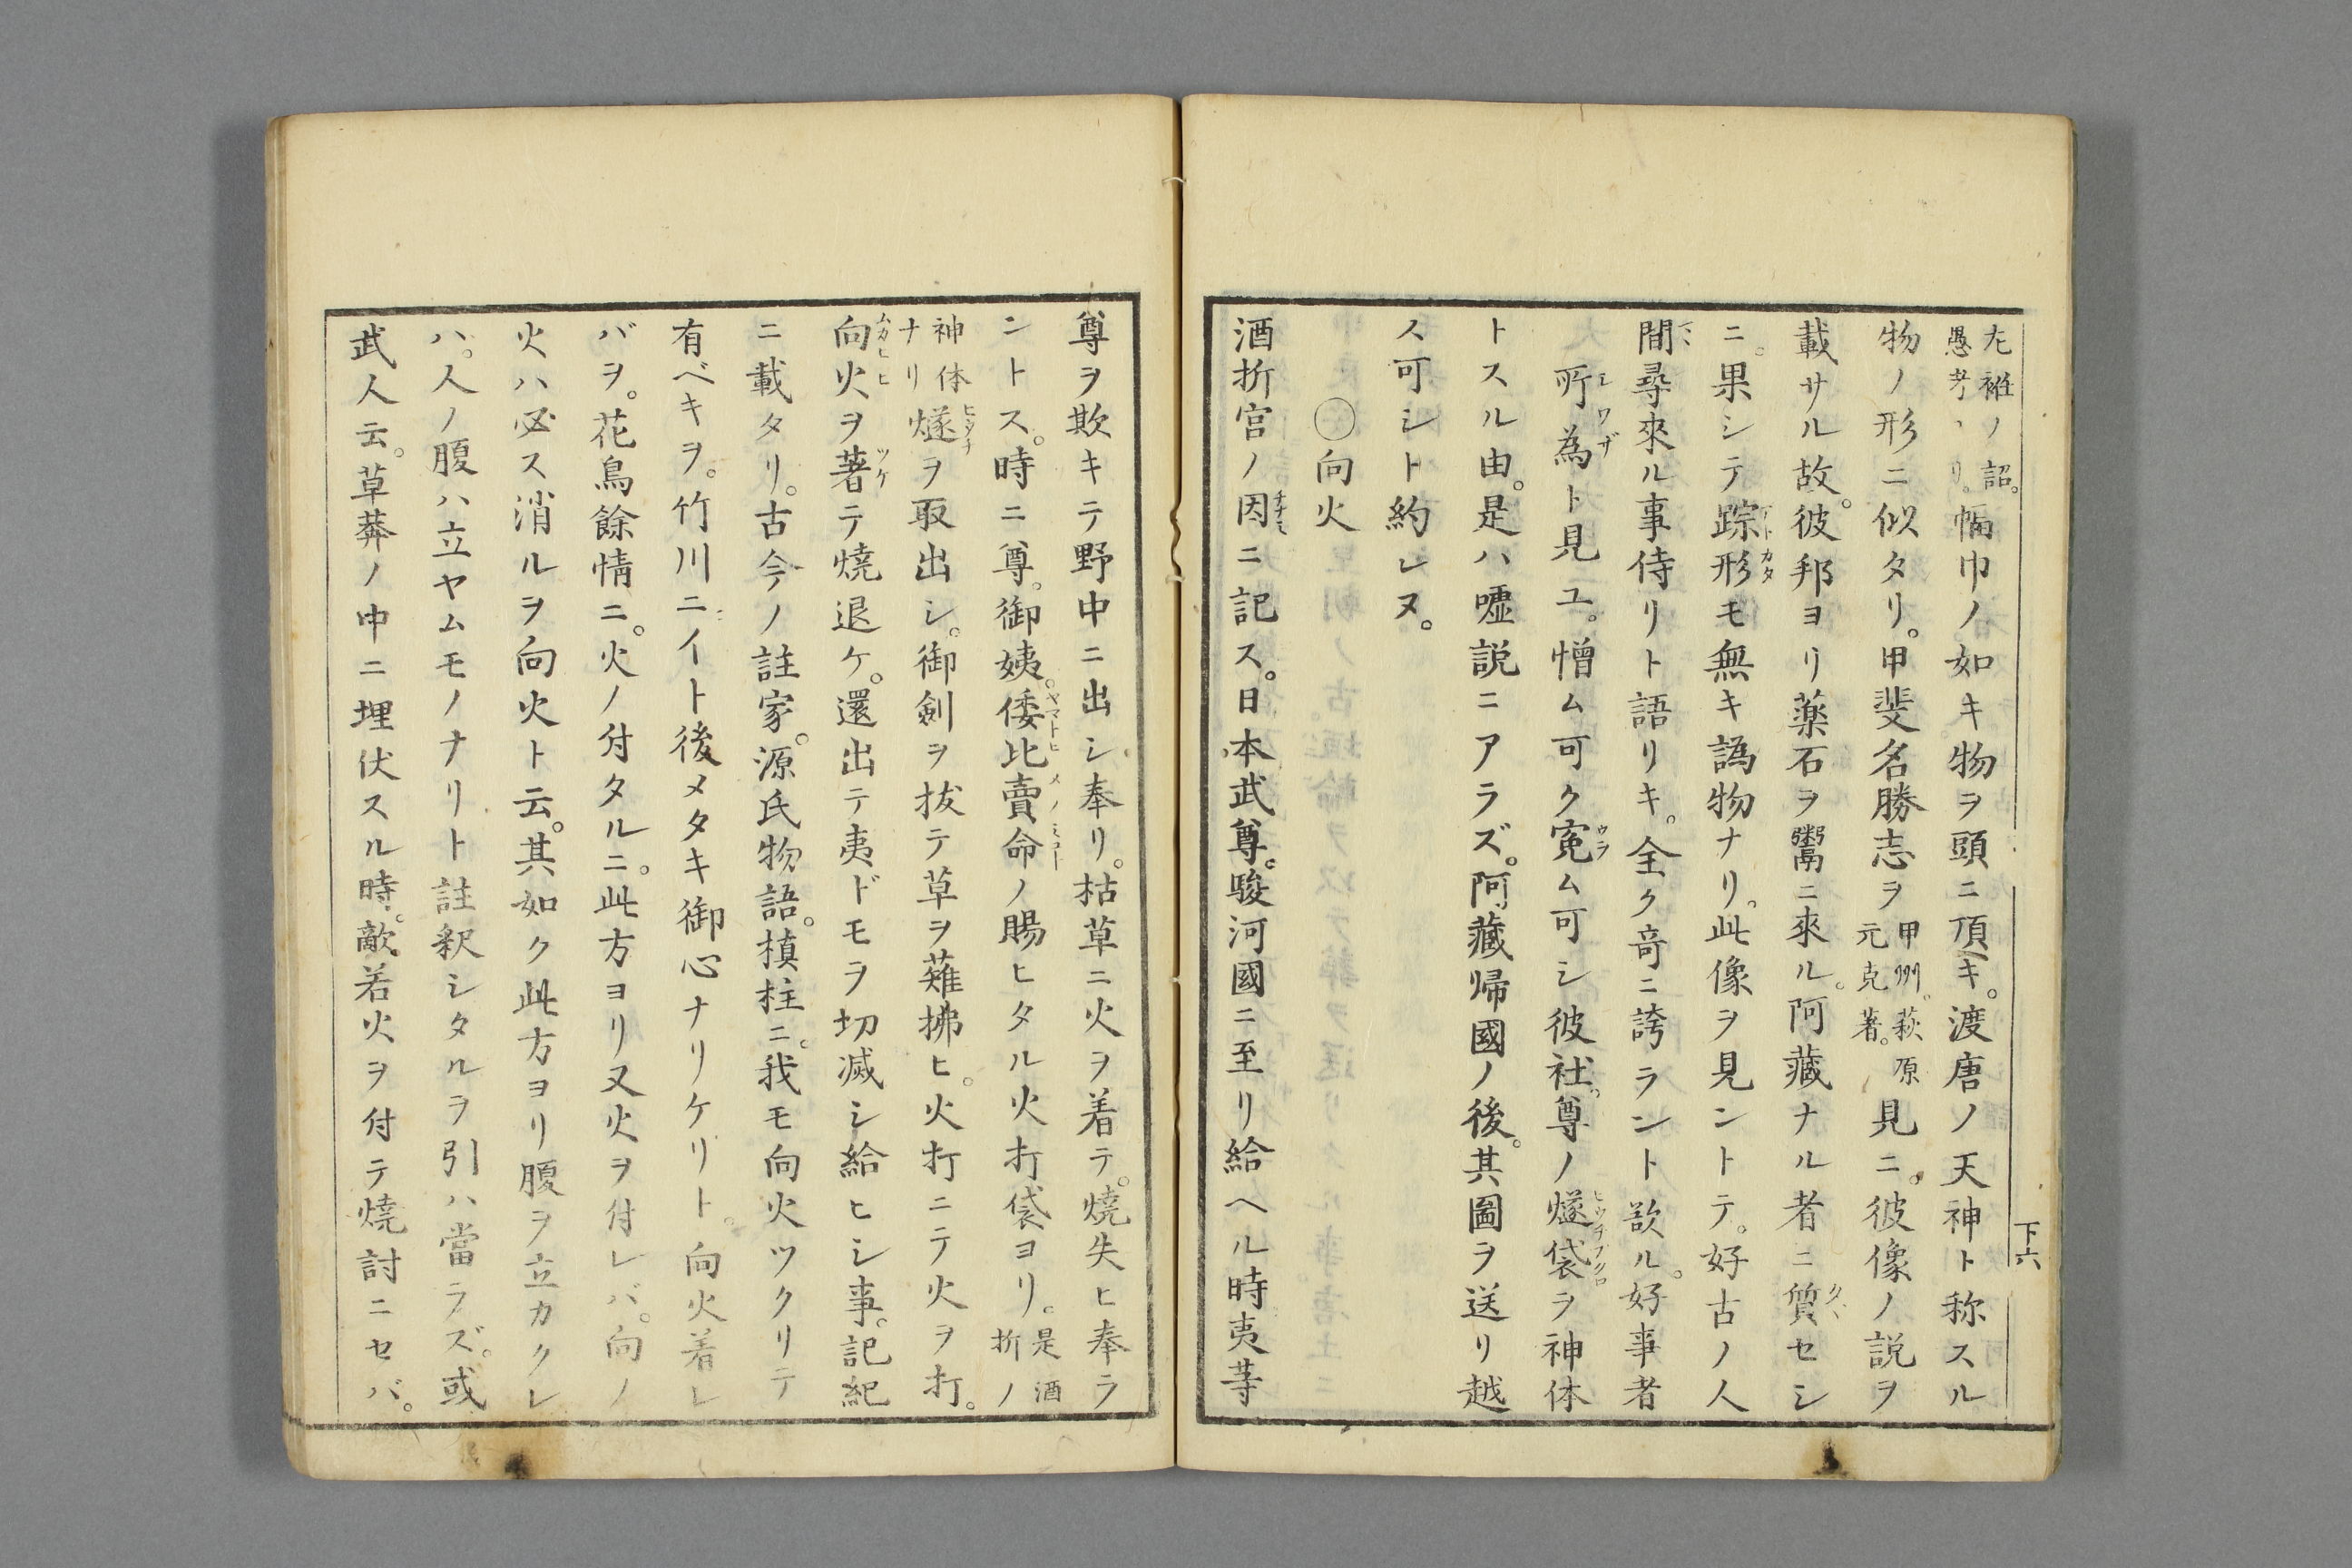 左袵ノ詔。
愚考
幅巾ノ如キ物ヲ頭ニ頂キ。渡唐ノ天神ト称スル
物ノ形ニ似タリ。甲斐名勝志ヲ
甲州。萩原
元克著。
見ニ。彼像ノ説ヲ
載サル故。彼邦ヨリ薬石ヲ鬻ニ來ル。阿藏ナル者ニ質セシ
ニ。果シテ踪形モ無キ譌物ナリ。此像ヲ見ントテ。好古ノ人
間尋來ル事侍リト語リキ。全ク竒ニ誇ラント欲ル。好事者
所為ト見ユ。憎ム可ク寃ム可シ彼社。尊ノ燧袋ヲ神体
トスル由。是ハ嘘説ニアラズ。阿藏帰國ノ後。其圖ヲ送リ越
ス可シト約レヌ。
〇向火
酒折宮ノ因ニ記ス。日本武尊。駿河國ニ至リ給ヘル時夷䓁
下六
尊ヲ欺キテ野中ニ出シ奉リ。枯草ニ火ヲ着テ。燒失ヒ奉ラ
ントス。時ニ尊。御姨。倭比賣命ノ賜ヒタル火打袋ヨリ。
是酒
折ノ
神体
ナリ
燧ヲ取出シ。御剣ヲ抜テ草ヲ薙拂ヒ。火打ニテ火ヲ打。
向火ヲ著テ燒退ケ。還出テ夷ドモヲ切滅シ給ヒシ事。記紀
ニ載タリ。古今ノ註家。源氏物語。槙柱ニ。我モ向火ツクリテ
有ベキヲ。竹川ニイト後メタキ御心ナリケリト。向火着レ
バヲ。花鳥餘情ニ。火ノ付タルニ。此方ヨリ又火ヲ付レバ。向ノ
火ハ必ス消ルヲ向火ト云。其如ク此方ヨリ腹ヲ立カクレ
ハ。人ノ腹ハ立ヤムモノナリト註釈シタルヲ引ハ當ラズ。或
武人云。草莽ノ中ニ埋伏スル時。敵。若火ヲ付テ燒討ニセバ。